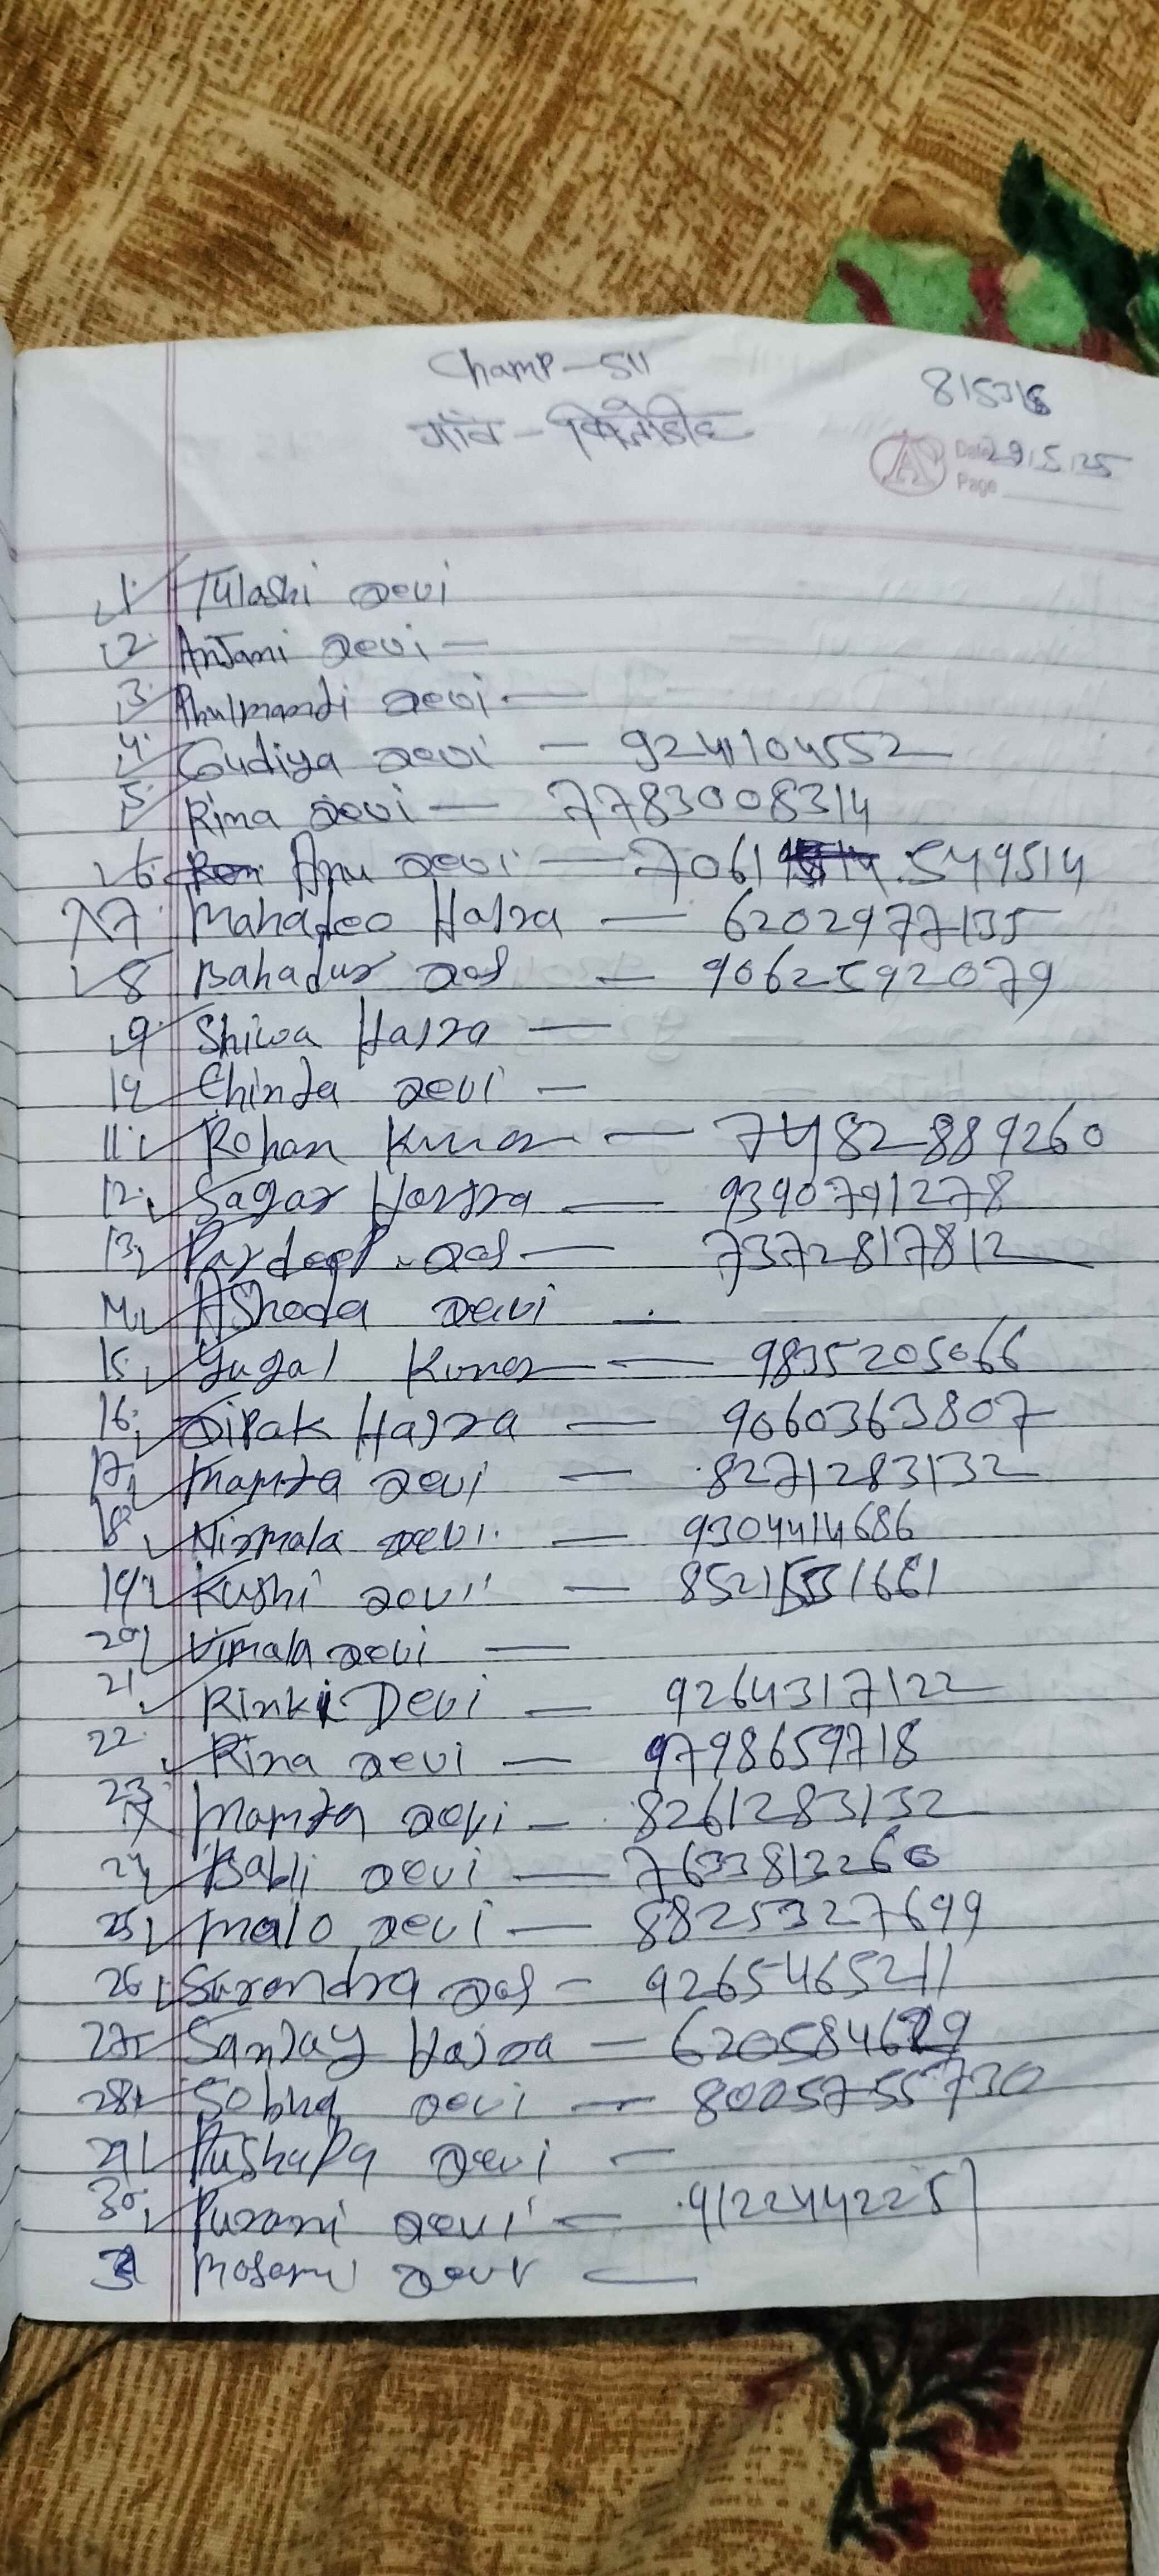 Champ-511
815316
गाँव -
Date 29.5.25
Page
1. Tulashi Devi
2. Anjani Devi —
3. Phulmanti Devi —
4. Gudiya Devi — 9241104552
5. Rina Devi — 7783008314
6. Anu Devi — 7061 549514
7 Mahadeo Hajra — 6202977135
8 Bahadur Das — 9062592079
9 Shiwa Hajra —
10 Chinta Devi —
11. Rohan Kumar — 7482889260
12. Sagar Hajra — 9390791278
13, Pardeep Das — 7372817812
14. AShoda Devi —
15, Yugal Kumar — 9835205066
16, Dipak Hajra — 9060363807
17, Mamta Devi — 8271283132
18, Nirmala Devi — 9304414686
19, Kushi Devi — 8521551661
20, Vimala Devi —
21, Rinki Devi — 9264317122
22. Rina Devi — 9798659718
23. Mamta Devi — 8261283132
24, Babli Devi — 7633813260
25, Malo Devi — 8825327699
26, Surendra Das — 9265465211
27, Sanjay Hajra —
28, Sobha Devi — 8005755730
29, PushaPa Devi —
30, Purani Devi — 9122442251
31 Devi —